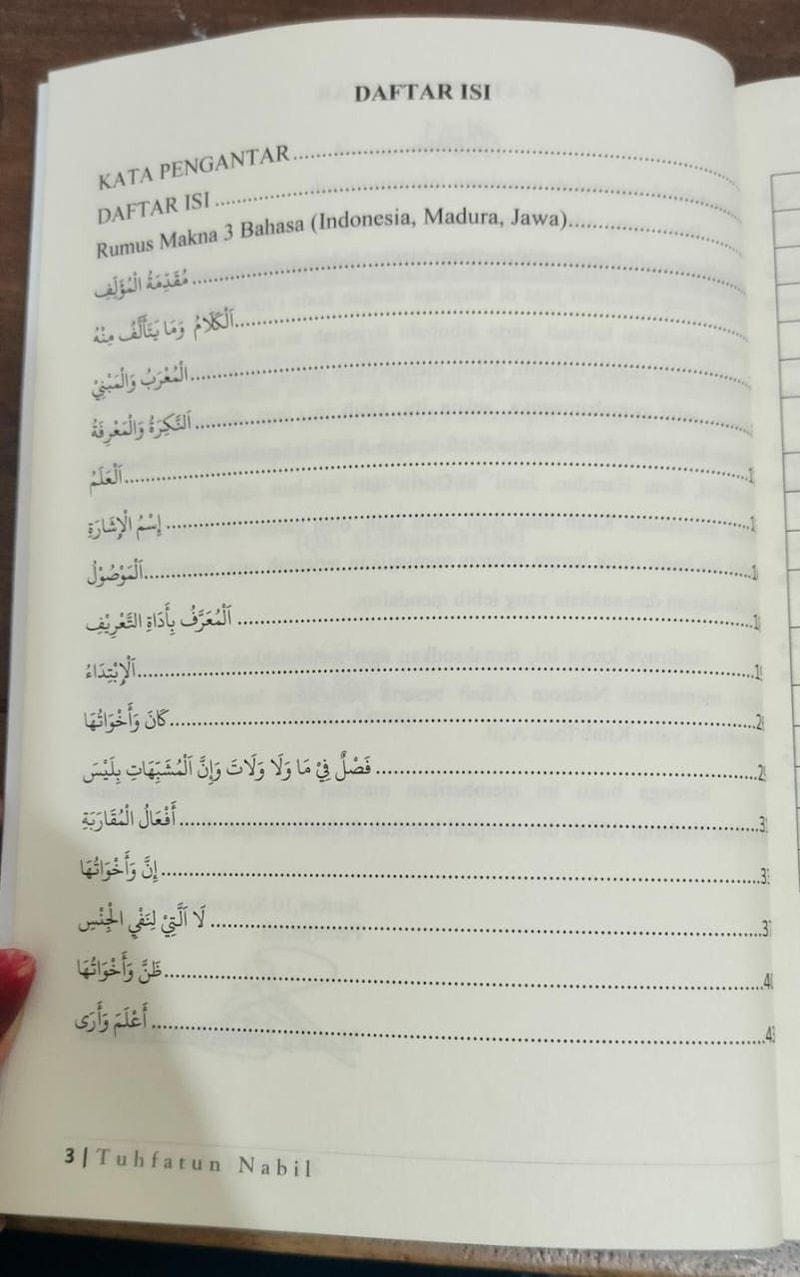 DAFTAR ISI
KATA PENGANTAR
DAFTAR ISI
Rumus Makna 3 Bahasa (Indonesia, Madura, Jawa)
مُقَدِّمَةُ الْمُؤَلِّفِ
اَلْكَلَامُ وَمَا يَتَأَلَّفُ مِنْهُ
الْمُعْرَبُ وَالْمَبْنِيُّ
اَلنَّكِرَةُ وَالْمَعْرِفَةُ
اَلْعَلَمُ
إِسْمُ الْإِشَارَةِ
اَلْمَوْصُوْلُ
اَلْمُعَرَّفُ بِأَدَاةِ التَّعْرِيْفِ
اَلْإِبْتِدَاءُ
كَانَ وَأَخْوَاتُهَا
فَصْلٌ فِيْ مَا وَلَا وَلَاتَ وَإِنَّ اَلْمُشَبَّهَاتِ بِلَيْسَ
أَفْعَالُ الْمُقَارَبَةِ
إِنَّ وَأَخْوَاتُهَا
لَا اَلَّتِيْ لِنَفْيِ الْجِنْسِ
ظَنَّ وَأَخْوَاتُهَا
أَعْلَمَ وَأَرَى
3 | Tuhfatun Nabil